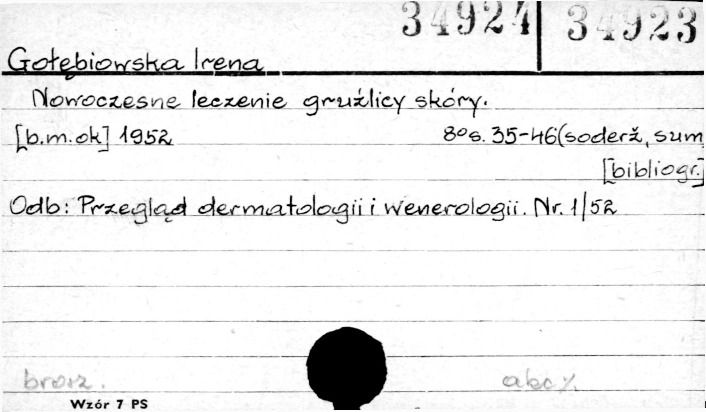 34924 34923
Gołębiowska Irena
Nowoczesne leczenie gruźlicy skóry.
[b.m.ok] 1952 8° s. 35-46 (soderż, sum
[bibliogr.]
Odb: Przegląd dermatologii i wenerologii. Nr. 1/52
brosz.
Wzór 7 PS